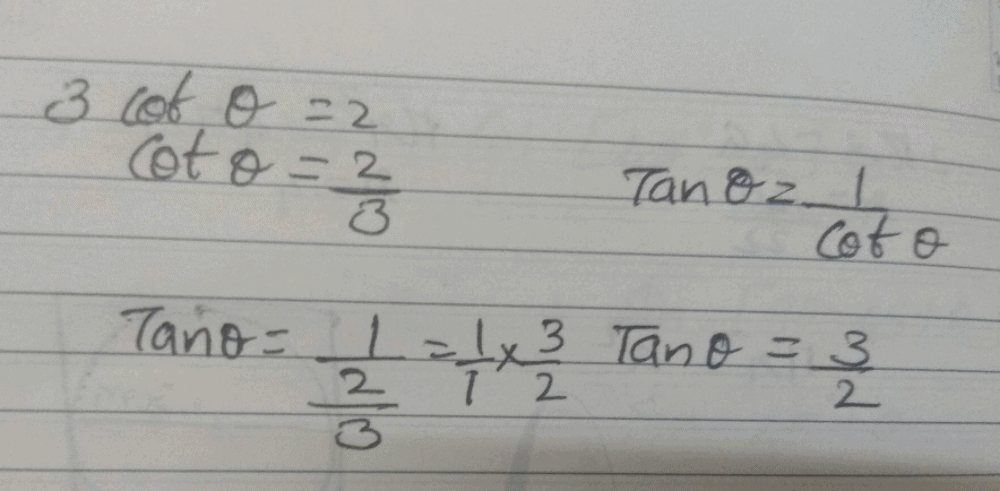 3 cot θ = 2
cot θ = 2/3
Tan θ = 1/cot θ
Tan θ = 1/(2/3) = 1/1 × 3/2 Tan θ = 3/2